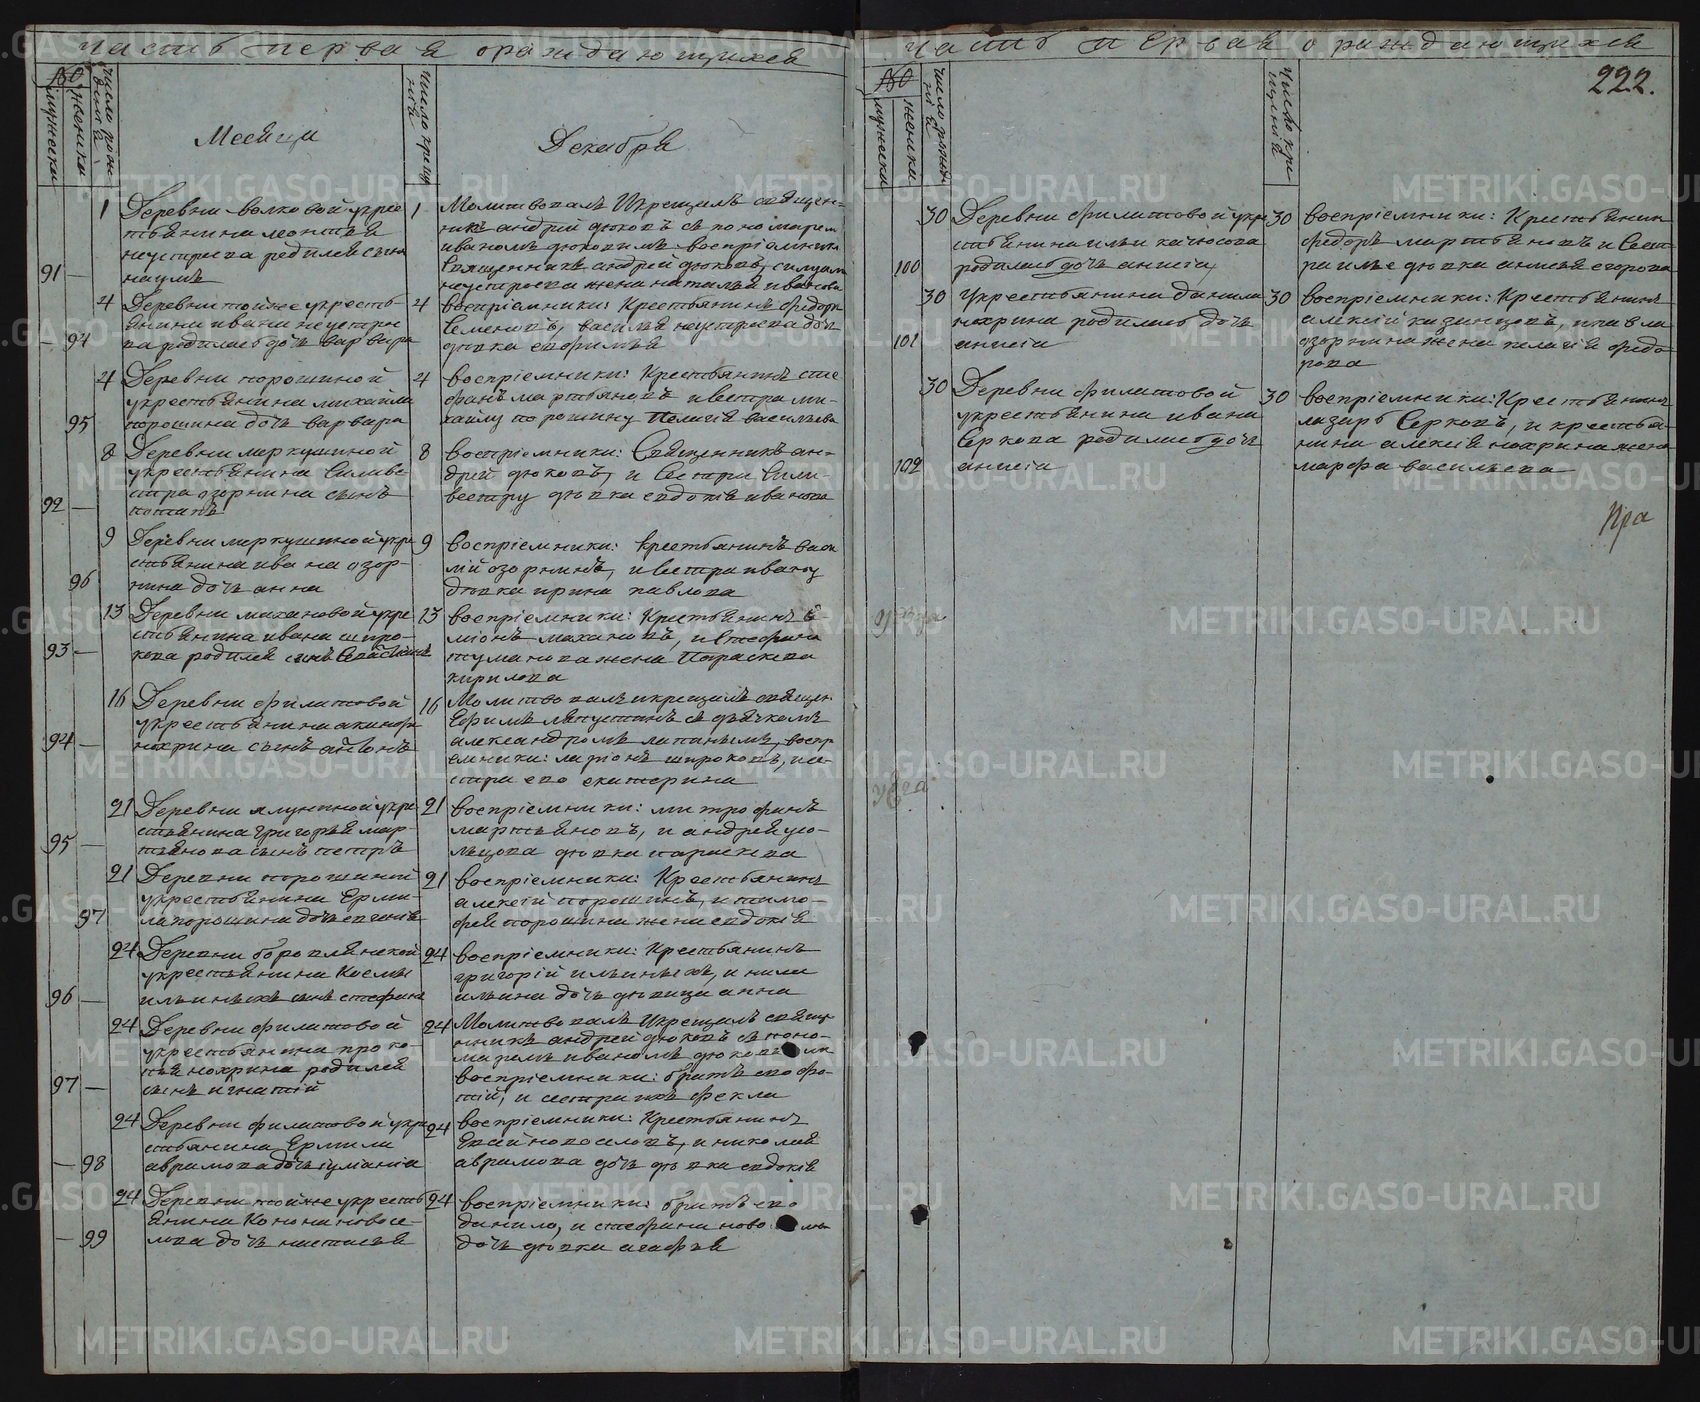 часть первая о раждающихся
№
мужеска
женска
число рожденія
Месяца
число крещенія
Декабря
1 Деревни волковой укрес 1
тьянина леонтья
неустроева родился сынъ
91 — наумъ
Молитвовалъ Икрещалъ священ-
никъ андрей дюковъ съ пономарем
иваномъ дюковымъ воспріемники
Священникъ андрей дюковъ,
неустроева жена наталья иванова
4 Деревни тойже укресть- 4
янина ивана неустрое
— 94 ва родилась дочь варвара
воспріемники: Крестьянинъ федоръ
Семеновъ, василья неустроева дочь
девка евфимья
4 Деревни порошиной 4
укрестьянина михаила
95 порошина дочь варвара
воспріемники: Крестьянинъ сте
фанъ мартьяновъ исестра ми-
хайлу порошину Пелагія васильева
8 Деревни меркушиной 8
укрестьянина Силиве
стра озорнина сынъ
92 — потапъ
воспріемники: Священникъ ан-
дрей дюковъ, и Сестра Сили-
вестру девка евдокія иванова
9 Деревни меркушиной укре 9
стьянина ивана озор-
96 нина дочь анна
воспріемники: крестьянинъ васи
лій озорнинъ, и Сестра ивану
девка ирина павлова
13 Деревни махановой укре 13
стьянина ивана широ-
93 — кова родился сынъ Севастьянъ
воспріемники: Крестьянинъ
махановъ, и Стефана
туманова жена Параскева
кирилова
16 Деревни филатовой 16
укрестьянина
94 — кокрина сынъ антонъ
Молитвовалъ икрещалъ священ
Ефимъ съ дьячкомъ
александромъ воспр
емники: ларіонъ широковъ, исе-
стра его екатерина
21 Деревни ялуниной укре 21
стьянина григорья мар-
95 — тьянова сынъ петръ
воспріемники: митрофанъ
мартьяновъ, и андрея
девка параскева
21 Деревни порошиной 21
укрестьянина Ерми-
97 ла порошина дочь евгенія
воспріемники: Крестьянинъ
алексей порошинъ, и тимо-
фея порошина жена евдокія
24 Деревни боровлянской 24
укрестьянина Космы
96 — ильиныхъ сынъ стефанъ
воспріемники: Крестьянинъ
григорій ильиныхъ, и нила
ильина дочь девица анна
24 Деревни филатовой 24
укрестьянина проко-
пья кокрина родился
97 — сынъ игнатій
Молитвовалъ Икрещалъ свяще
нникъ андрей дюковъ съ поно-
маремъ иваномъ
воспріемники: братъ его фо-
тій, и сестра ихъ фекла
24 Деревни филатовой укре 24
стьянина Ермила
— 98 аврамова дочь
воспріемники: Крестьянинъ
Евсей новоселовъ, и николая
аврамова дочь девка евдокія
24 Деревни тойже укресть 24
янина Конона новосе-
— 99 лова дочь настасья
воспріемники: братъ его
данило, и стефана
дочь девка агафья
часть первая о раждающихся
222.
№
мужеска
женска
30 Деревни филатовой укре 30
стьянина ильи
100 родилась дочь анисія
воспріемники: Крестьянин
федоръ мартьяновъ и Сест
девка анисья егорова
30 Укрестьянина данила 30
кокрина родилась дочь
101 анисія
воспріемники: Крестьянинъ
алексей казанцовъ, и павла
озорнина жена пелагія федо
рова
30 Деревни филатовой 30
укрестьянина ивана
Серкова родилась дочь
102 анисія
воспріемники: Крестьянинъ
лазарь Серковъ, и крестья-
нина алексія кокрина жена
марфа васильева